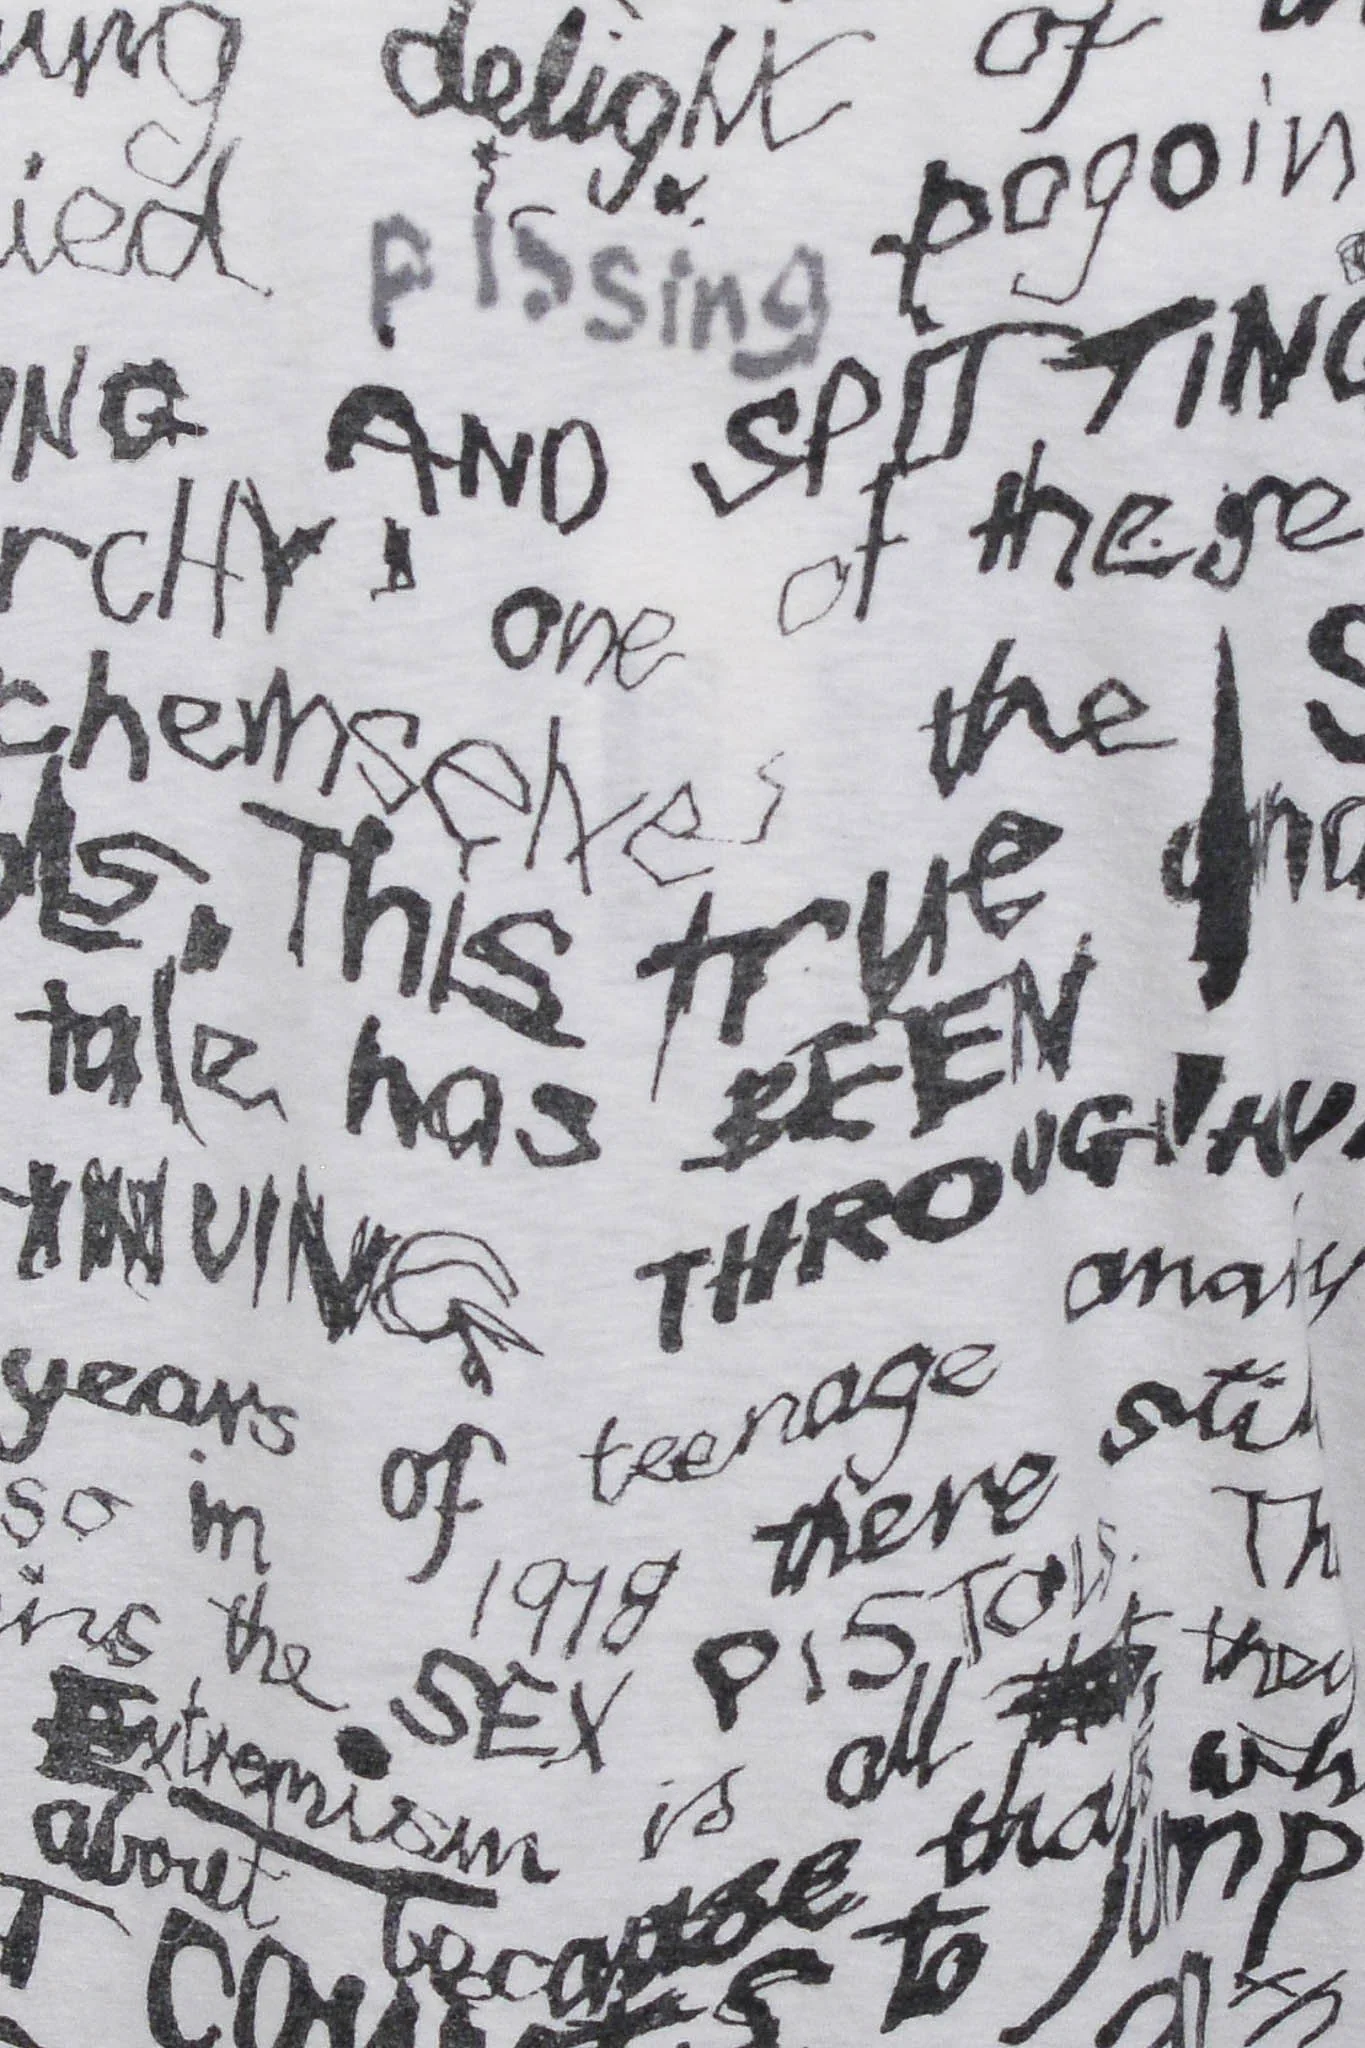 ung delight of
ied pissing pogoin
ING AND SPITTING
rcHY' one of these
chemselves the S
ols. This true and
tale has BEEN
TINUING THROUGHOU
years of teenage analy
so in 1978 there stil
ins the SEX PISTOLS. Th
Extremism is all that they
about because that wh
T COMES to jump